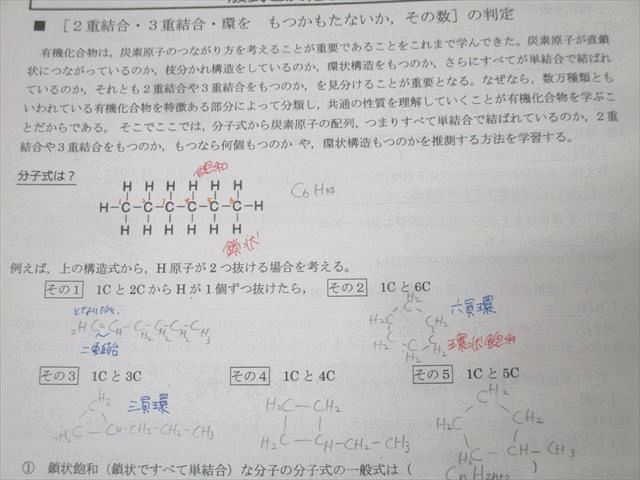 ■ [2重結合・3重結合・環を もつかもたないか，その数] の判定
有機化合物は，炭素原子のつながり方を考えることが重要であることをこれまで学んできた。炭素原子が直鎖
状につながっているのか，枝分かれ構造をしているのか，環状構造をもつのか，さらにすべてが単結合で結ばれ
ているのか，それとも2重結合や3重結合をもつのか，を見分けることが重要となる。なぜなら，数万種類とも
いわれている有機化合物を特徴ある部分によって分類し，共通の性質を理解していくことが有機化合物を学ぶこ
とだからである。 そこでここでは，分子式から炭素原子の配列，つまりすべて単結合で結ばれているのか，2重
結合や3重結合をもつのか，もつなら何個もつのか や，環状構造もつのかを推測する方法を学習する。
分子式は？
飽和
C6H14
H H H H H H
H-C-C-C-C-C-C-H
1 2 3 4 5 6
H H H H H H
鎖状
例えば，上の構造式から，H原子が2つ抜ける場合を考える。
その1 1Cと2CからHが1個ずつ抜けたら，
その2 1Cと6C
H2C=CH-CH2-CH2-CH2-CH3
二重結合
CH2
H2C CH2
H2C CH2
CH2
六員環
環状飽和
その3 1Cと3C
その4 1Cと4C
その5 1Cと5C
CH2
H2C-CH-CH2-CH2-CH3
三員環
H2C-CH2
H2C-CH-CH2-CH3
CH2
H2C CH2
H2C-CH-CH3
① 鎖状飽和（鎖状ですべて単結合）な分子の分子式の一般式は（ CnH2n+2